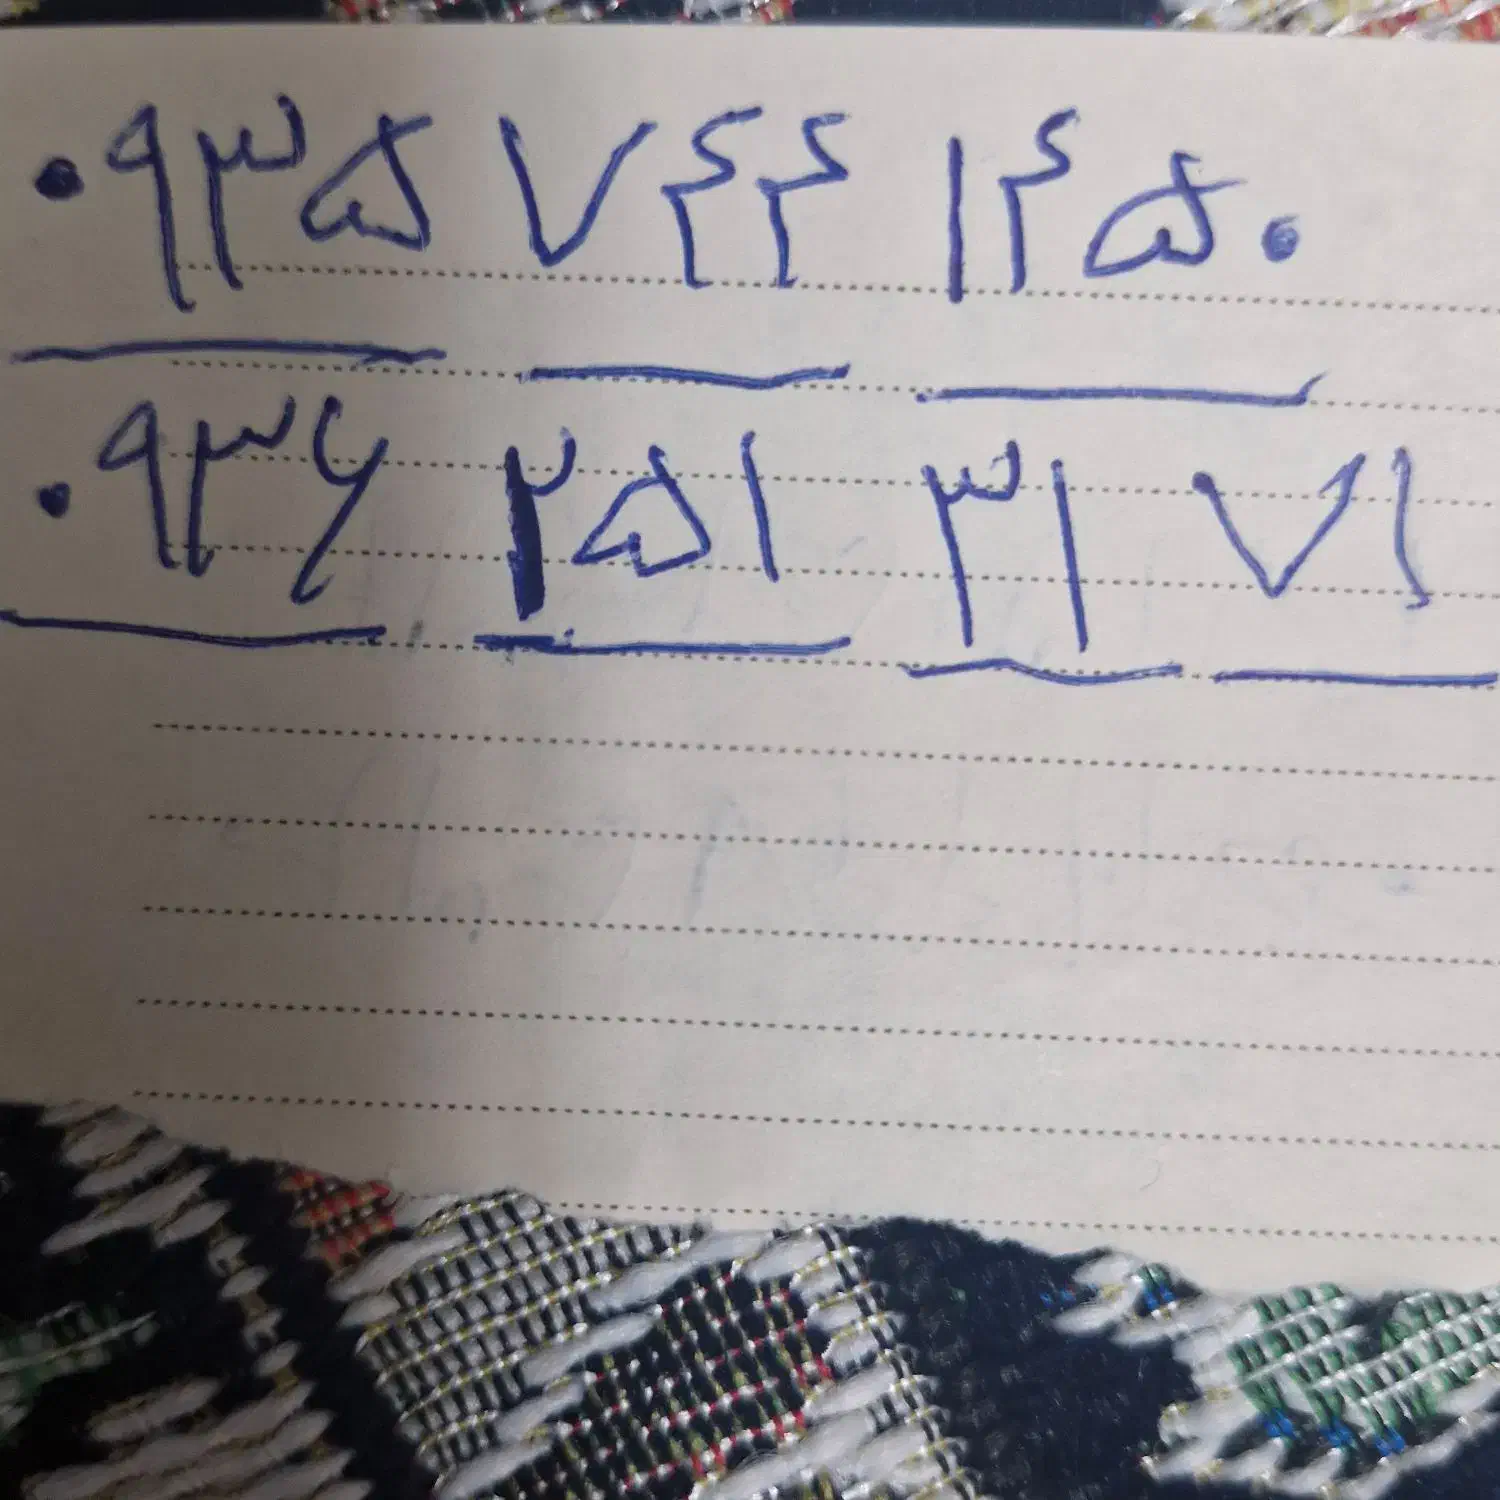 ۰۹۳۵ ۷۴۴ ۱۴۵۰
۰۹۳۶ ۲۵۱ ۳۱ ۷۱